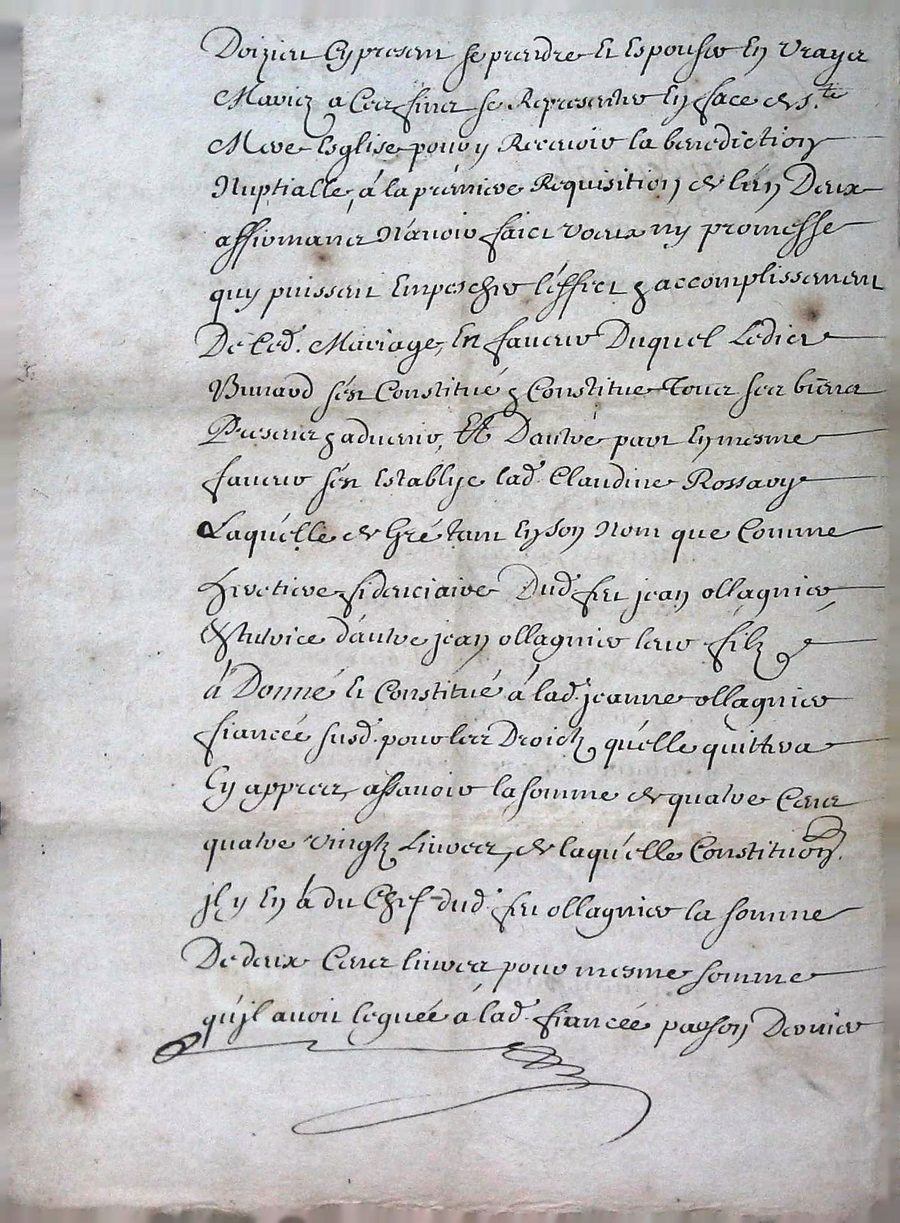 Doizieu Cy present se prendre et espouser En vrayes
Mariez a Ces fins se Representer En face de S.te
Mere Esglise pour y Recevoir la benediction
Nuptialle, á la premiere Requisition de l'un Deux
affirmants N'avoir faict voeux ny promesse
quy puissent Empescher l'éffect & accomplissement
De Ced. Mariage, En faveur Duquel Ledict
s'ést Constitué & Constitue Tous ses biens
Presents & advenir, Et D'autre part En mesme
faveur s'ést Establye lad. Claudine Rossary
Laquélle de Gré tant En son Nom que Comme
heretiere fidenciaire Dud. feu jean ollagnier
& tutrice d'autre jean ollagnier leur filz
á Donné Et Constitué á lad. jeanne ollagnier
fiancée susd. pour les Droictz qu'elle quittera
Cy appres, assavoir la somme de quatre Cents
quatre vingtz Livres, de laquélle Constituon.
jl y En á du Chef dud. feu ollagnier la somme
De deux Cents livres pour mesme somme
qu'jl avoit leguée á lad. fiancée par son Dernier